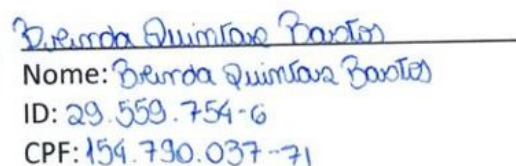 Brenda Quintare Bastos
Nome: Brenda Quintare Bastos
ID: 29.559.754-6
CPF: 154.790.037-71